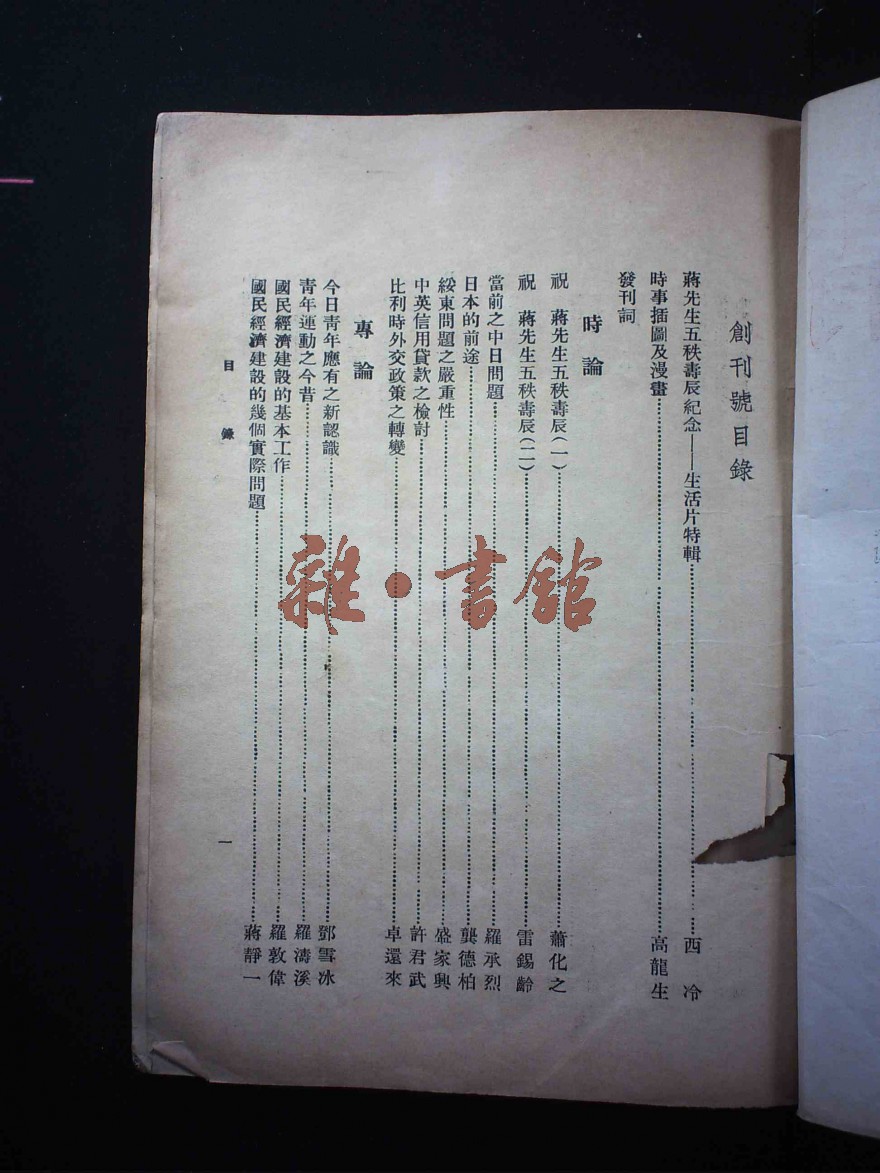 創刊號目錄
蔣先生五秩壽辰紀念——生活片特輯……西冷
時事插圖及漫畫……高龍生
發刊詞
時論
祝 蔣先生五秩壽辰(一)……蕭化之
祝 蔣先生五秩壽辰(二)……雷錫齡
當前之中日問題……羅承烈
日本的前途……龔德柏
綏東問題之嚴重性……盛家興
中英信用貸款之檢討……許君武
比利時外交政策之轉變……卓還來
專論
今日靑年應有之新認識……鄧雪冰
靑年運動之今昔……羅濤溪
國民經濟建設的基本工作……羅敦偉
國民經濟建設的幾個實際問題……蔣靜一
目錄
一
雜·書館